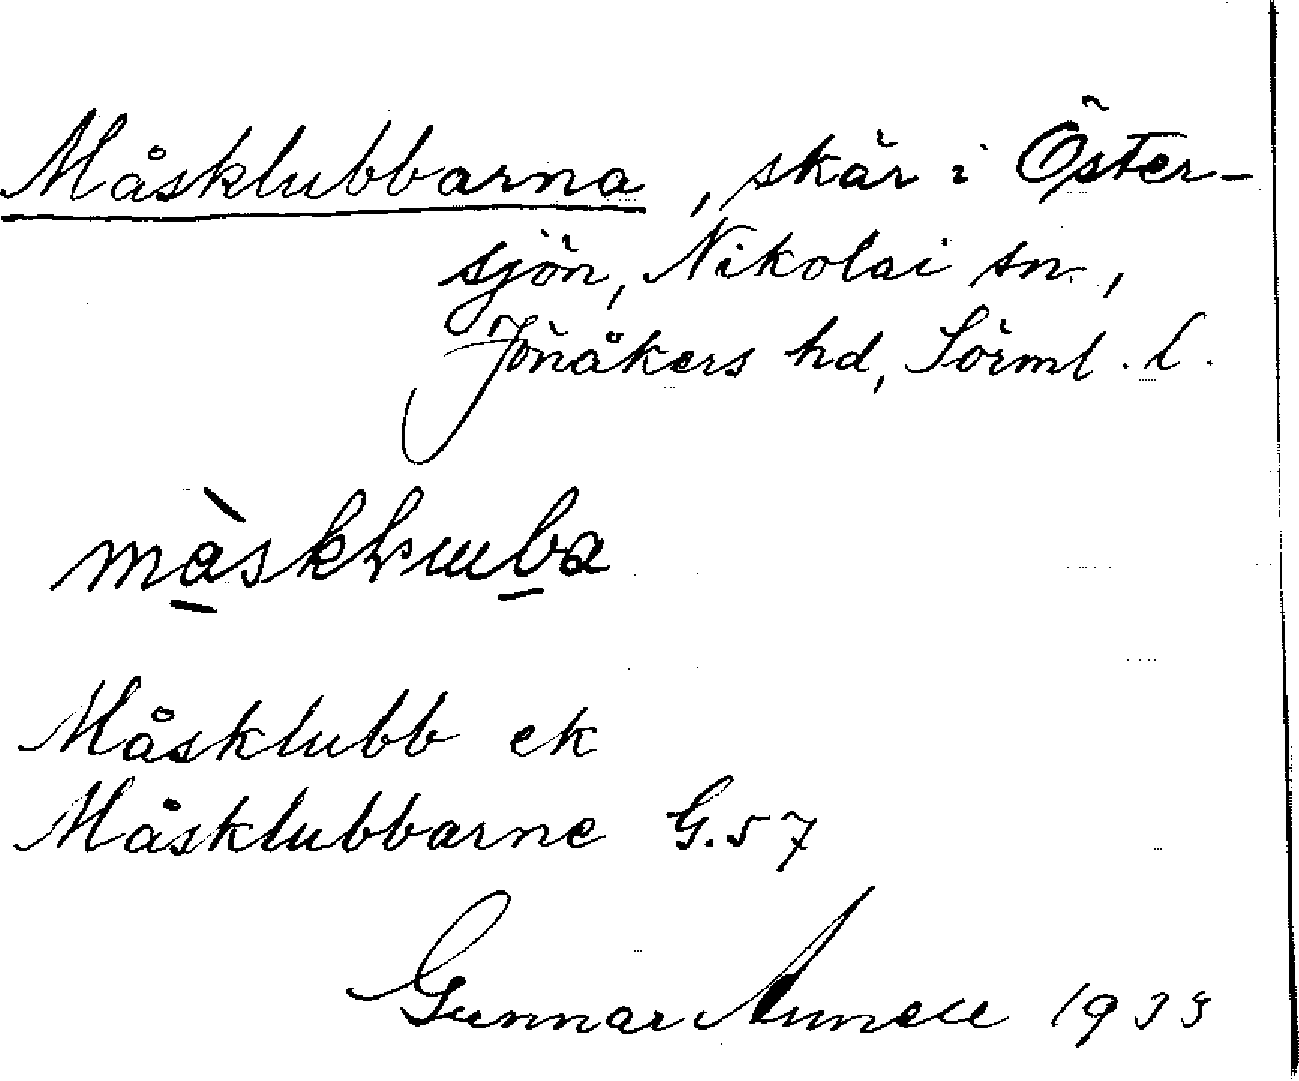 Måsklubbarna, skär i Öster-
sjön, Nikolai sn.,
Jönåkers hd, Sörml. l.
Måsklubb ek
Måsklubbarne G. 57
Gunnar